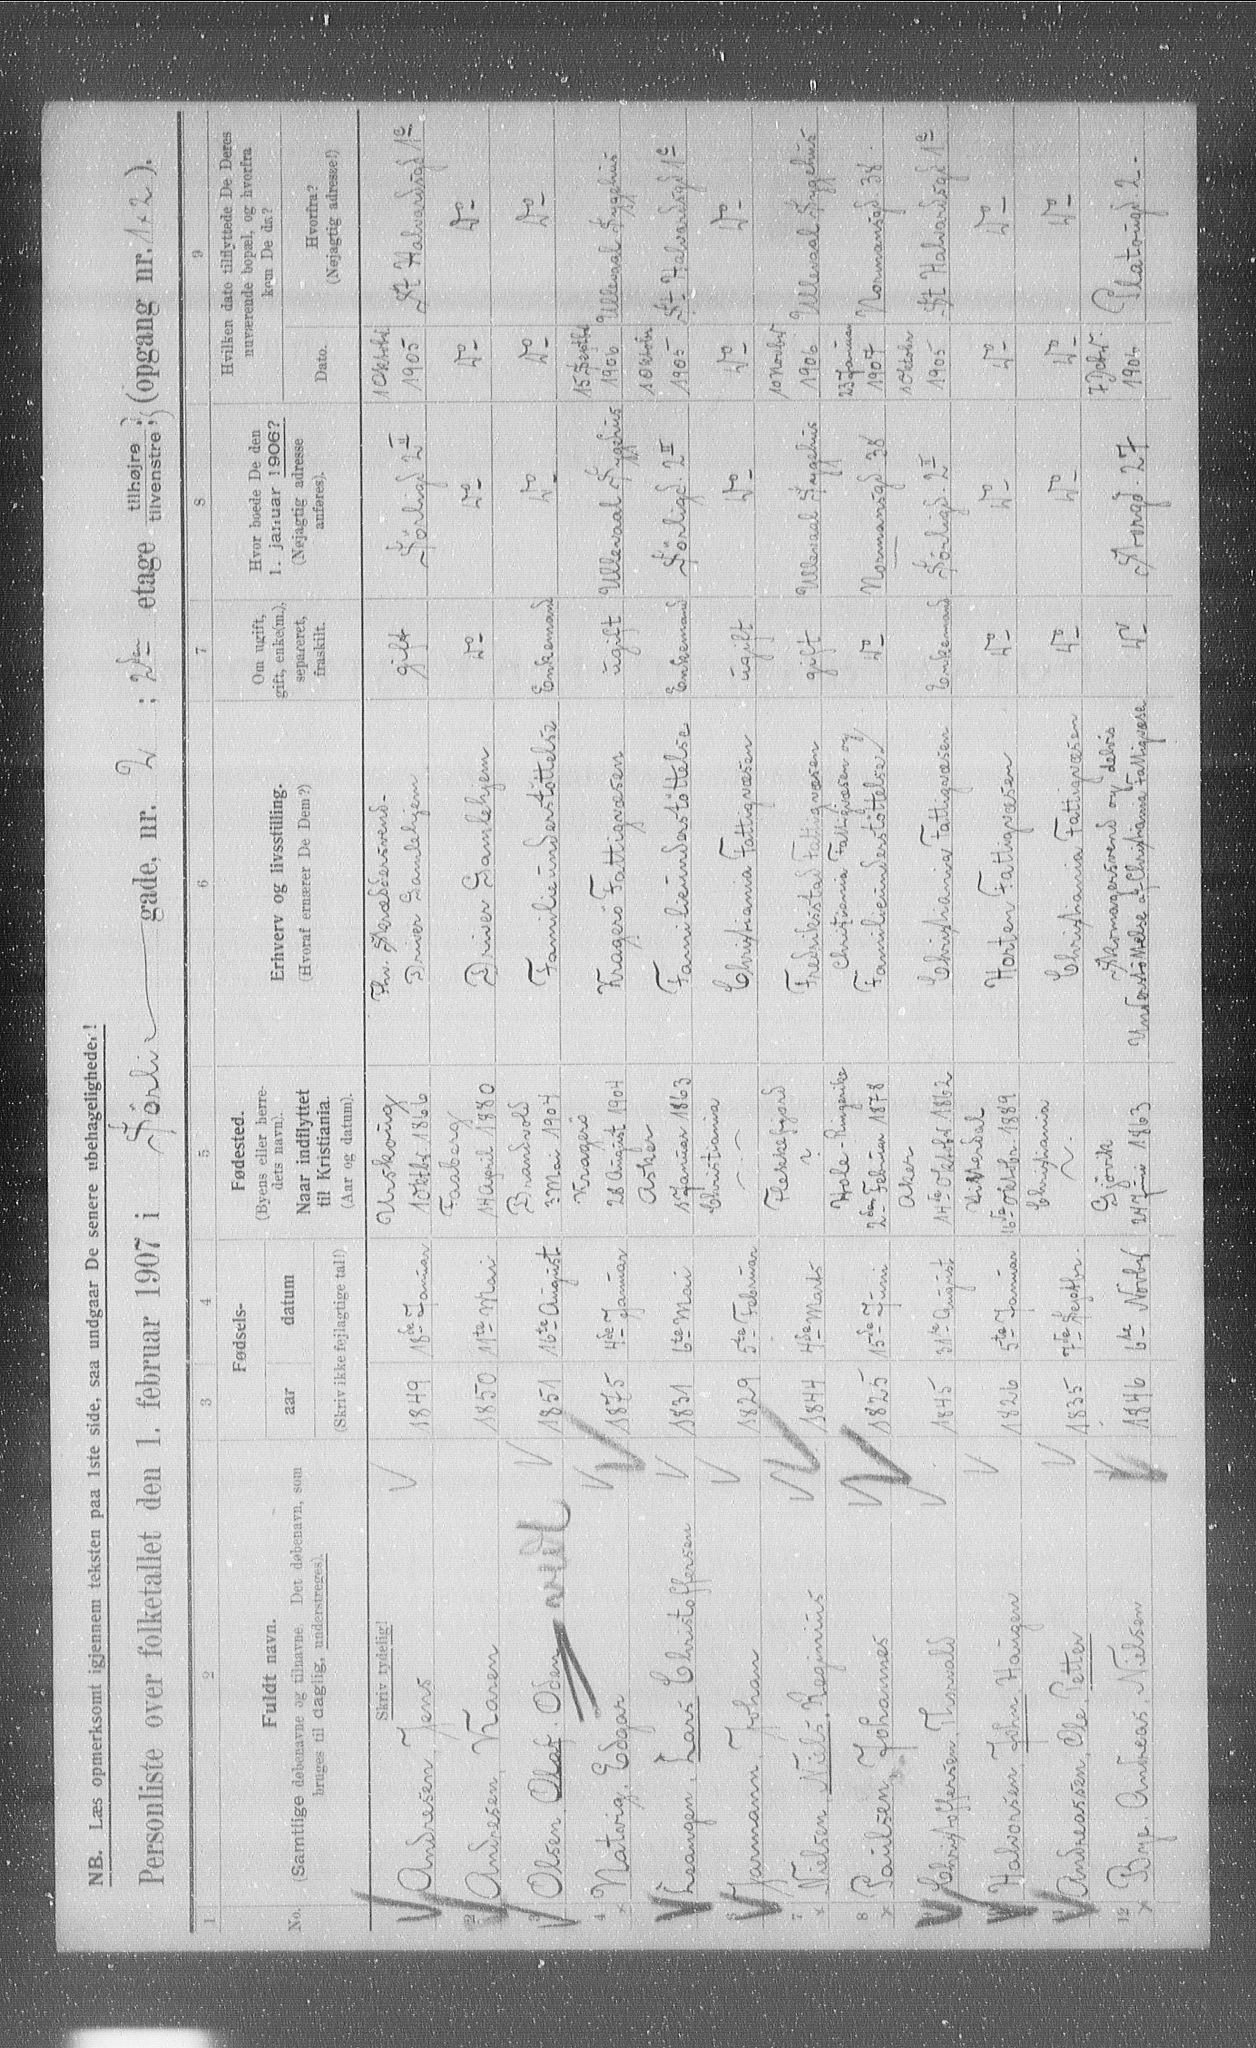 NB. Læs opmerksomt igjennem teksten paa 1ste side, saa undgaar De senere ubehageligheder!
Personliste over folketallet den 1. februar 1907 i Sörli gade, nr. 2 ; 2den etage tilhøjre, tilvenstre, (opgang nr. 1 x 2).
1 2 3 4 5 6 7 8 9
No.
Fuldt navn.
(Samtlige døbenavne og tilnavne. Det døbenavn, som
bruges til daglig, understreges).
Fødsels-
aar datum
(Skriv ikke fejlagtige tal!)
Fødested.
(Byens eller herre-
dets navn).
Naar indflyttet
til Kristiania.
(Aar og datum).
Erhverv og livsstilling.
(Hvoraf ernærer De Dem?)
Om ugift,
gift, enke(m.),
separeret,
fraskilt.
Hvor boede De den
1. januar 1906?
(Nøjagtig adresse
anføres).
Hvilken dato tilflyttede De Deres
nuværende bopæl, og hvorfra
kom De da?
Dato.
Hvorfra?
(Nøjagtig adresse!)
Skriv tydelig!
Andresen, Jens 1849 18de Januar Urskoug 1 Oktbr 1866 Fhv. Skræddersvend- Driver Gamlehjem gift Sörligd 2 II 1 Oktober 1905 St Halvardsgd 1c
2 Andresen, Karen 1850 11te Mai Faaberg 14 April 1880 Driver Gamlehjem do do do do
3 Olsen, Olaf. Oden 1851 16te August Brandvold 3 Mai 1904 Familieunderstöttelse Enkemand do do do
4 x Natvig, Edgar 1875 4de Januar Kragerö 28 August 1904 Kragerö Fattigvæsen ugift Ullevaal Sygehus 15 Septbr 1906 Ullevaal Sygehus
Leangen, Lars Christoffersen 1831 6te Mai Asker 1 Januar 1863 Familieunderstöttelse Enkemand Sörligd. 2 II 1 Oktober 1905 St Halvardsgd 1c
Jarmann, Johan 1829 5te Februar Christiania Christiania Fattigvæsen ugift do do do
7 x Nielsen, Niels, Reginius 1844 4de Marts Flekkefjord ? Fredriksstad Fattigvæsen gift Ullevaal Sygehus 10 Novbr 1906 Ullevaal Sygehus
8 x Paulsen, Johannes 1825 15de Juni Hole Ringerike 2den Februar 1878 Christiania Fattigvæsen og Familieunderstöttelse do Normansgd 38 23 Januar 1907 Normansgd 38.
Christoffersen, Thorvald 1845 31te August Aker 14de Oktbr 1862 Christiania Fattigvæsen Enkemand Sörligd. 2 II 1 Oktober 1905 St Halvardsgd 1c
Halvorsen, John, Haugen 1826 5te Januar 16de Oktober 1889 Horten Fattigvæsen do do do do
Andreassen, Ole, Petter 1835 7de Septbr. Christiania Christiania Fattigvæsen do do do do
12 x Bye, Andreas, Nielsen 1846 6te Novbr Gjövik 24 Juni 1863 Skomagersvend og delvis Understöttelse af Christiania Fattigvæse do 27 7 Debr. 1906 Platougd 2-